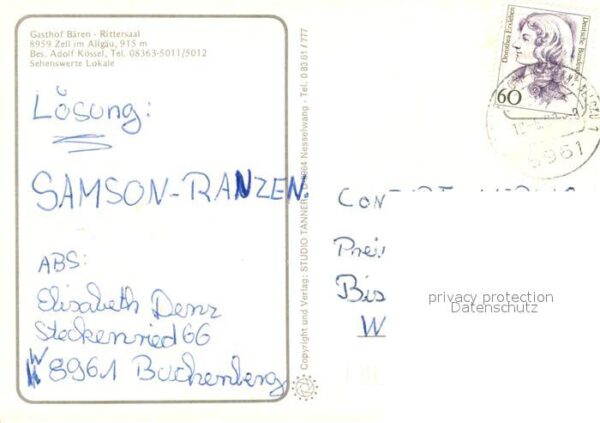 Gasthof Bären - Rittersaal
8959 Zell im Allgäu, 915 m
Bes. Adolf Kössel, Tel. 08363-5011/5012
Sehenswerte Lokale
Lösung:
SAMSON-RANZEN.
ABS:
Elisabeth Denz
Steckenried 66
W 8961 Buchenberg
Copyright und Verlag: STUDIO TANNER, 8964 Nesselwang - Tel. 0 83 61 / 777
Dorothea Erxleben
Deutsche Bundespost
60
8961
Prei
Bis
W
privacy protection
Datenschutz